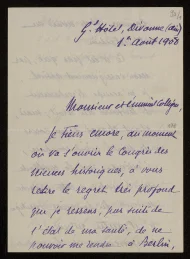 Gd Hôtel, Divonne (Ain)
1er Août 1908
Monsieur et éminent Collègue
Je tiens encore, au moment
où va s'ouvrir le Congrès des
sciences historiques, à vous
redire le regret très profond
que je ressens, par suite de
l'état de ma santé, de ne
pouvoir me rendre à Berlin,